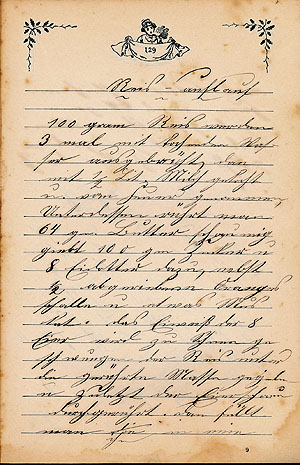 129
Reis-auflauf
100 gram Reis werden
3 mal mit kochenden Was-
ser ausgebrüht, dan
mit ½ Lit. Milch gekocht
u. vom feuer genommen,
Unterdessen rührt man
64 gr. Butter schaumig
giebt 100 gr Zucker u
8 Eidotter dazu, nebst
abgeriebene Orangen
schalle u etwas Mus
kat. das Eiweiß der 8
Eier wird zu Schnee ge
schwungen der Reis unter
die gerührte Masse
u zuletzt der Eierschaum
durchgerührt. man füllt
in eine
9